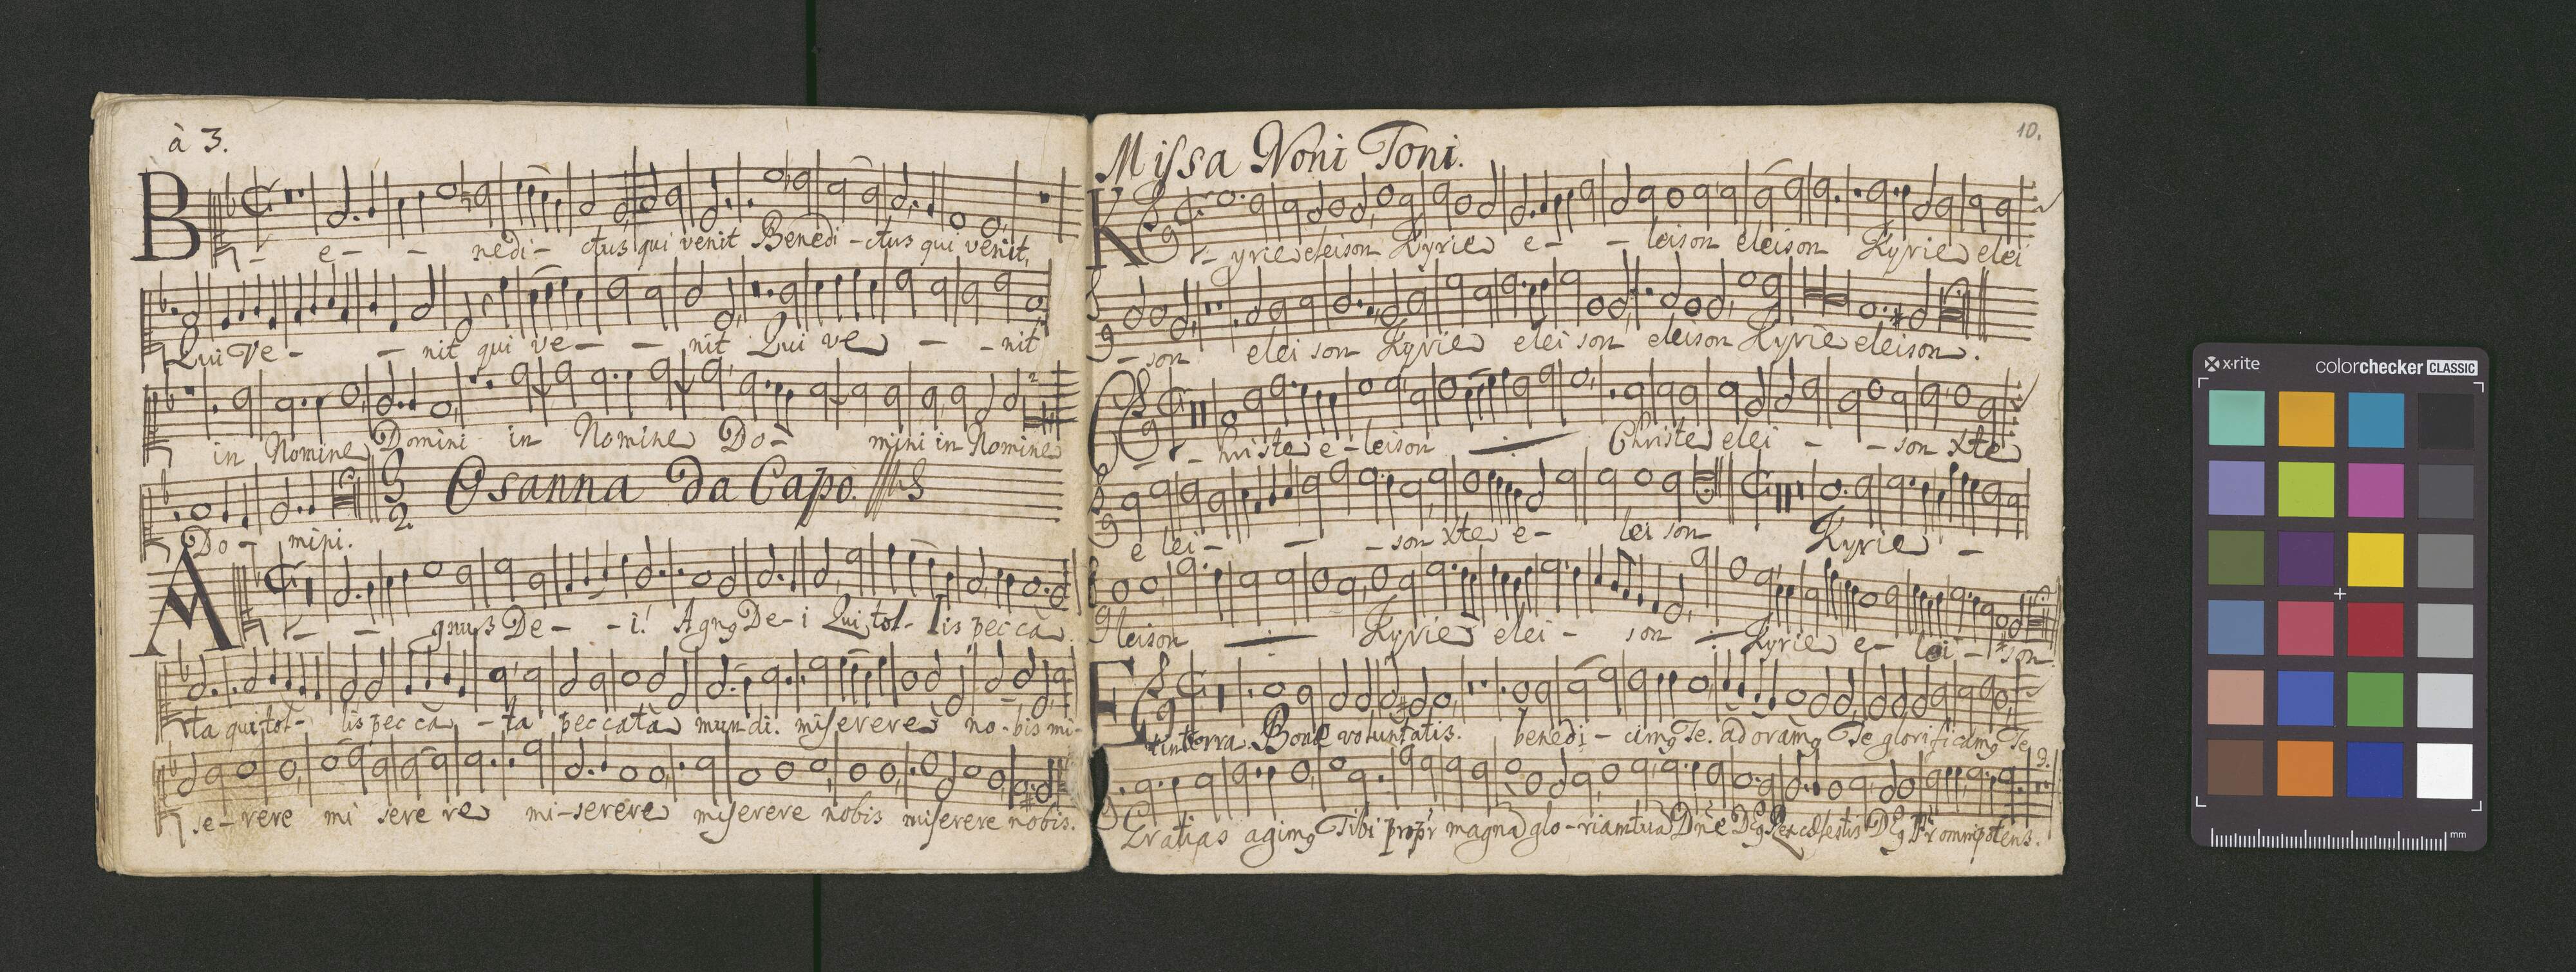 à 3.
Be - - nedi - ctus qui venit Benedi - ctus qui venit,
Qui Ve - - nit qui ve - - nit Qui ve - - nit
in Nomine Domini in Nomine Do - mini in Nomine
Osanna Da Capo.
Do - mini.
A - - gnus De - - i! Agng De - i Qui tol - lis pecca
ta qui tol - lis pec ca - ta peccata mundi. miserere no - bis mi -
se - rere mi sere re mi - serere miserere nobis miserere nobis.
10.
Missa Noni Toni.
K - yrie eleison Kyrie e - - leison eleison Kyrie elei
- son elei son Kyrie elei son eleison Kyrie eleison.
C - - hriste e - leison Christe elei - - son xte
e lei - - - son xte e - lei son Kyrie -
leison Kyrie elei - son Kyrie e - lei - son.
Et in terra. Bonæ voluntatis. benedi - cimg Te. adoramg Te glorificamg Te
Gratias agimg Tibi propr magna glo - riam tua Dne Deg Rex cælestis Deg Pr omnipotens.
x-rite
colorchecker CLASSIC
mm